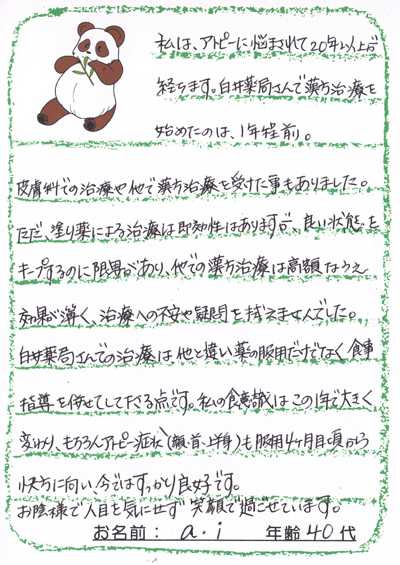 私は、アトピーに悩まされて20年以上が
経ちます。臼井薬局さんで漢方治療を
始めたのは、1年程前。
皮膚科での治療や他で漢方治療を受けた事もありました。
ただ、塗り薬による治療は即効性はありますが、良い状態を
キープするのに限界があり、他での漢方治療は高額なうえ
効果が薄く、治療への不安や疑問を拭えませんでした。
臼井薬局さんでの治療は、他と違い薬の服用だけでなく食事
指導を併せてして下さる点です。私の食意識はこの1年で大きく
変わり、もちろんアトピー症状(顔・首・上半身)も服用4ヶ月目頃から
快方に向い、今ではすっかり良好です。
お陰様で人目を気にせず笑顔で過ごせています。
お名前： a.i 年齢 40代